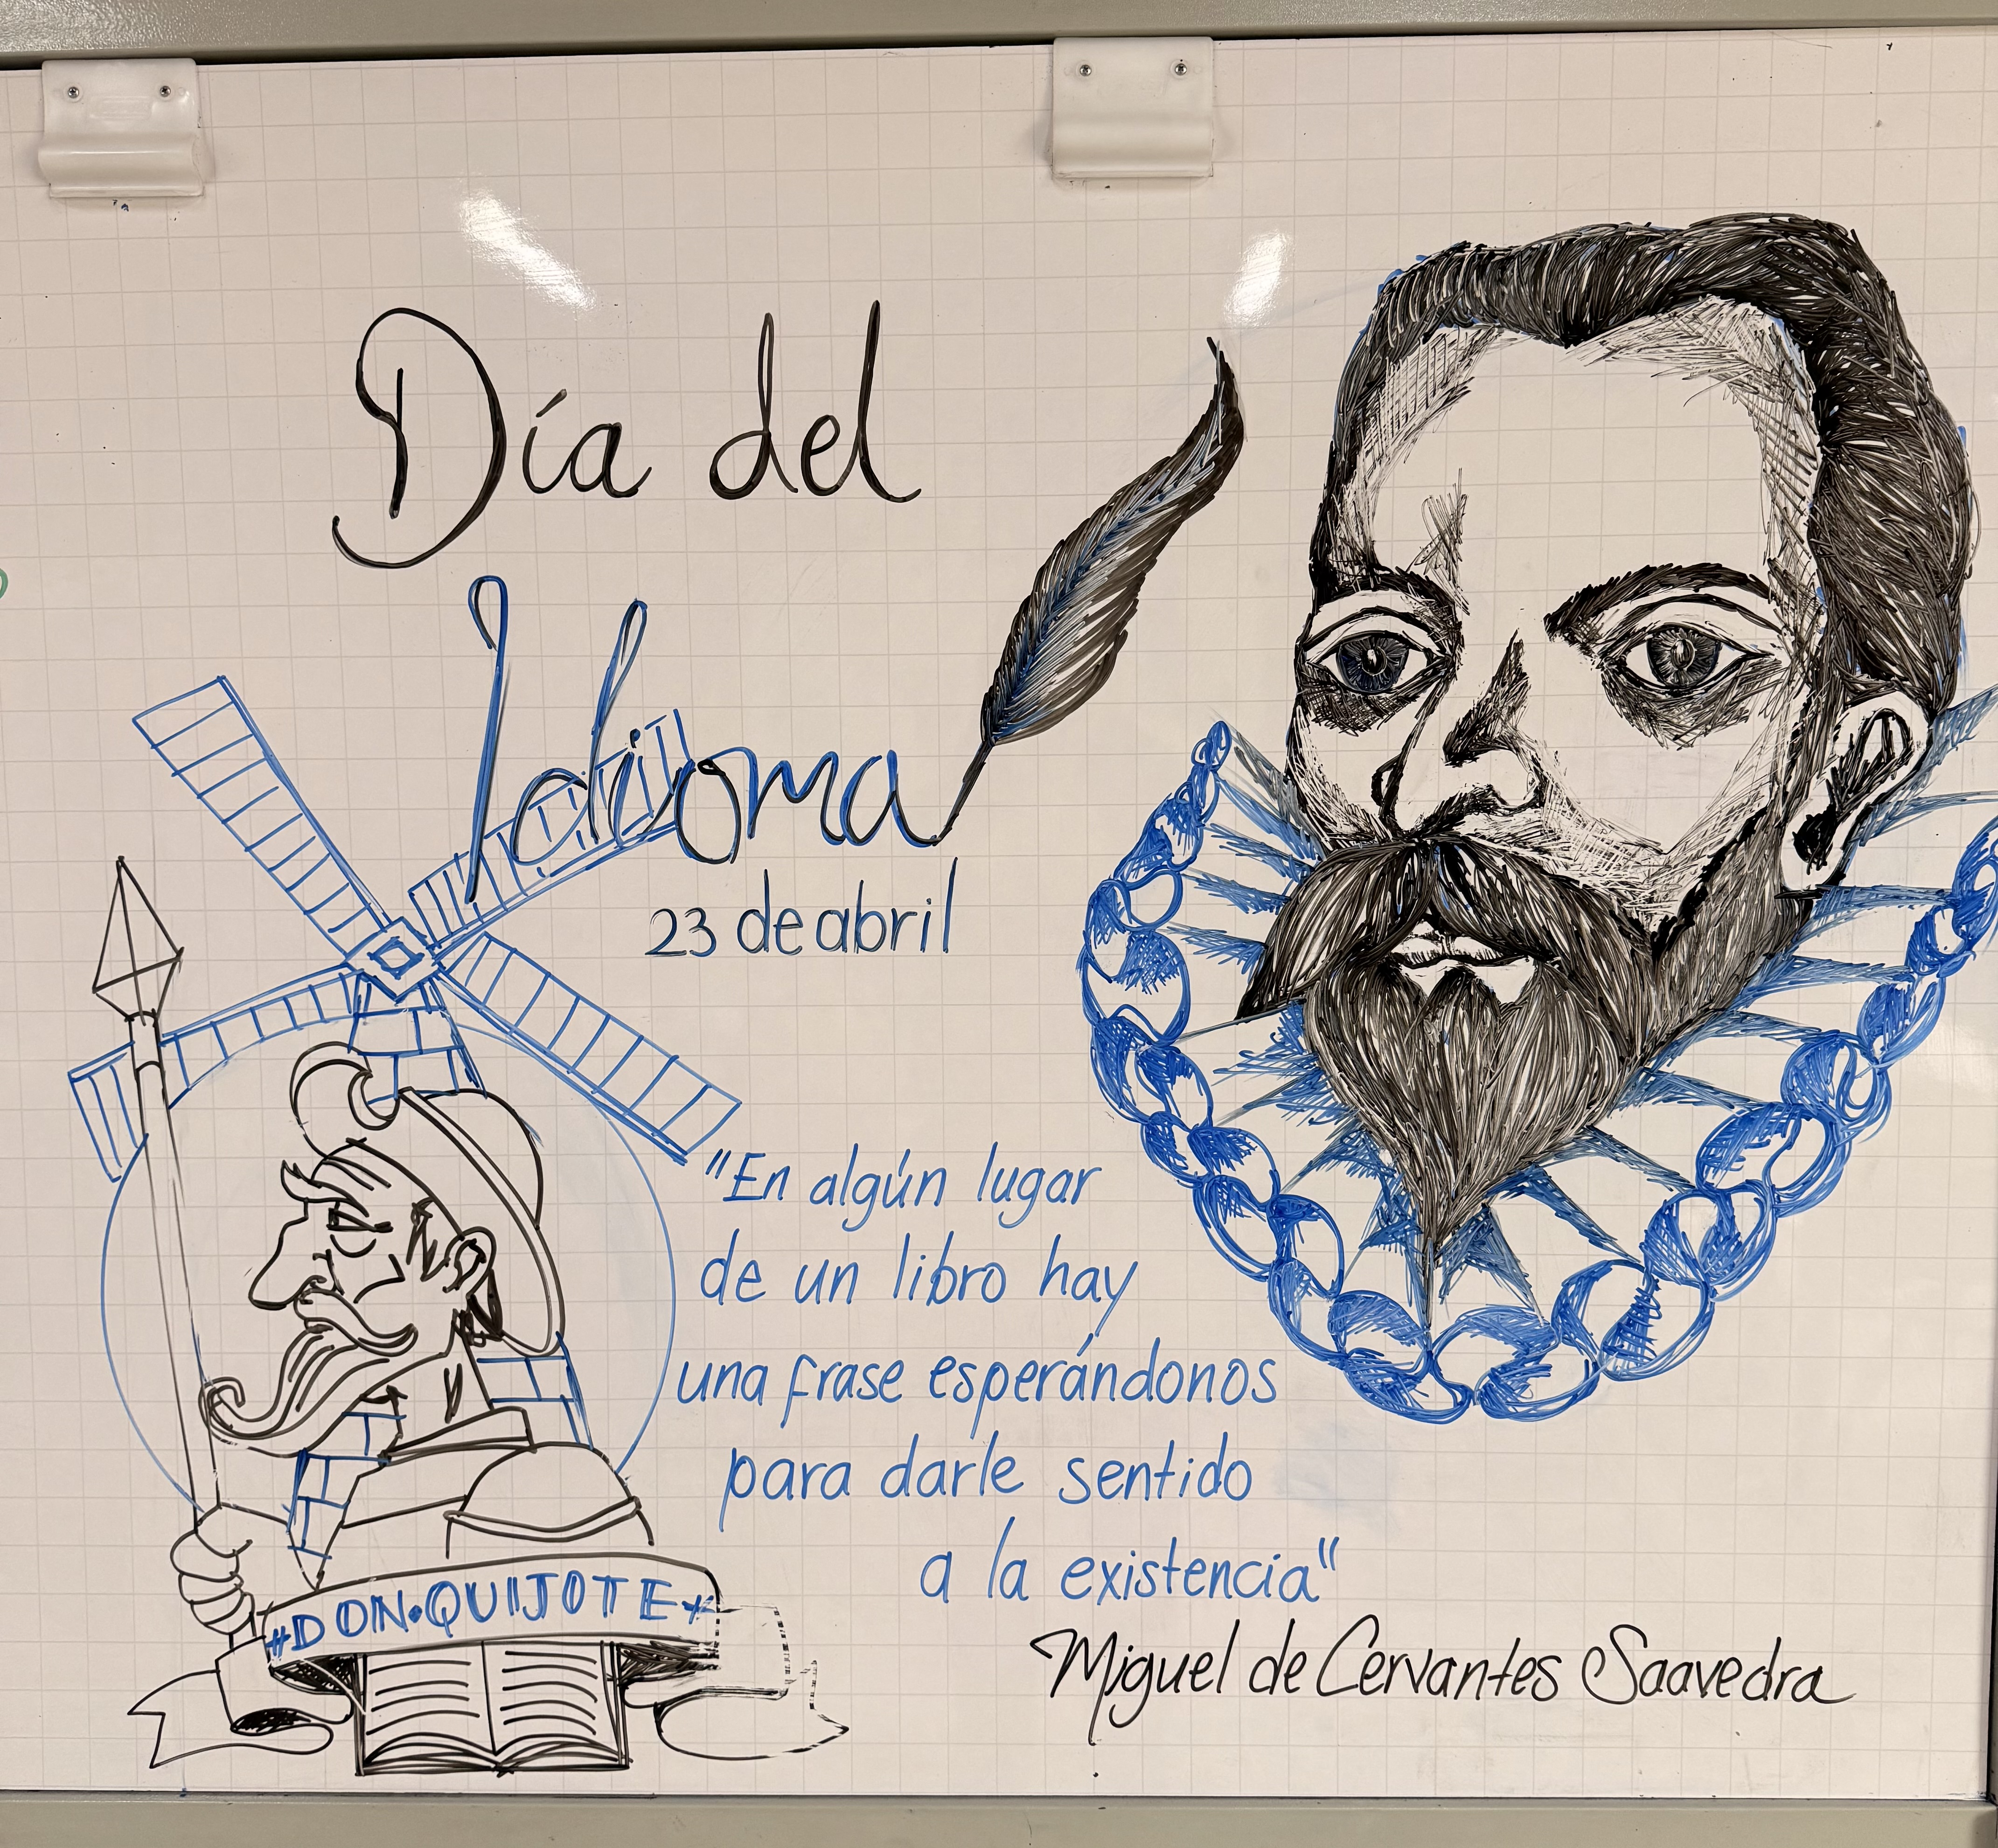 Día del
Idioma
23 de abril
"En algún lugar
de un libro hay
una frase esperándonos
para darle sentido
a la existencia"
Miguel de Cervantes Saavedra
DON·QUIJOTE